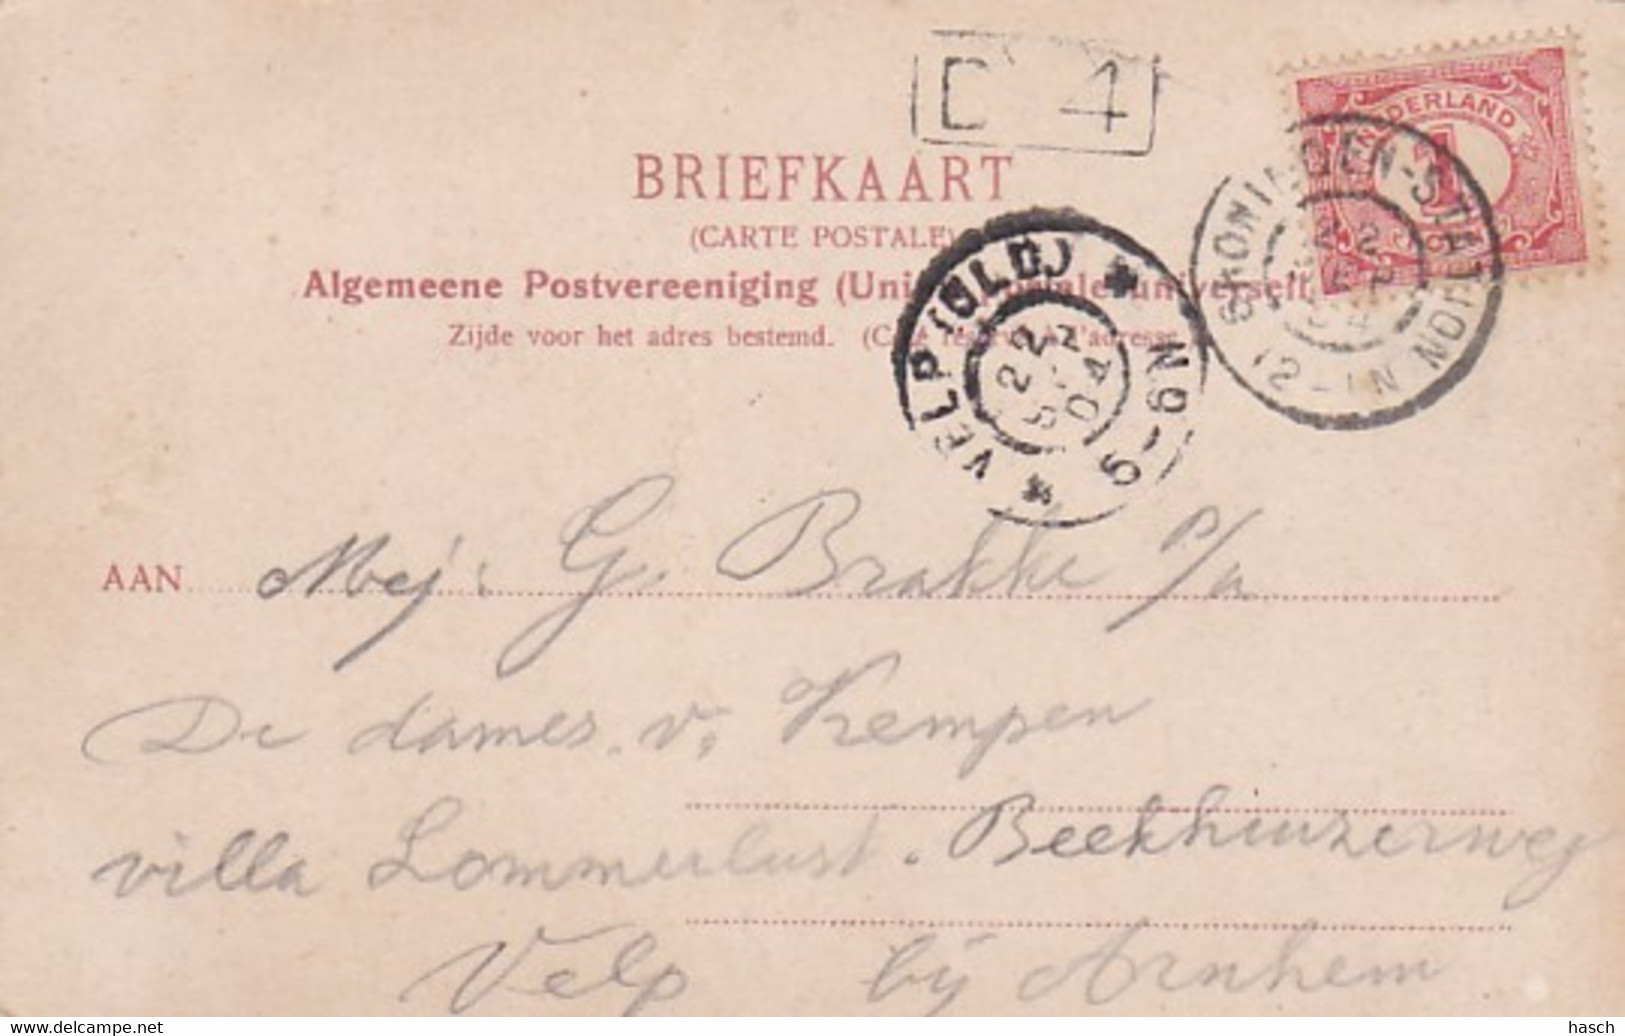 D 4
NEDERLAND
1
BRIEFKAART
(CARTE POSTALE)
Algemeene Postvereeniging (Union postale universelle)
Zijde voor het adres bestemd. (Côté réservé à l'adresse
GRONINGEN-STATION
12-1N
VELP (GLD)
22
SEP
04
5-6N
AAN Mej: G. Brakke p/a
De dames v. Kempen
villa Lommerlust. Beekhuizerweg
Velp bij Arnhem
www.delcampe.net
hasch